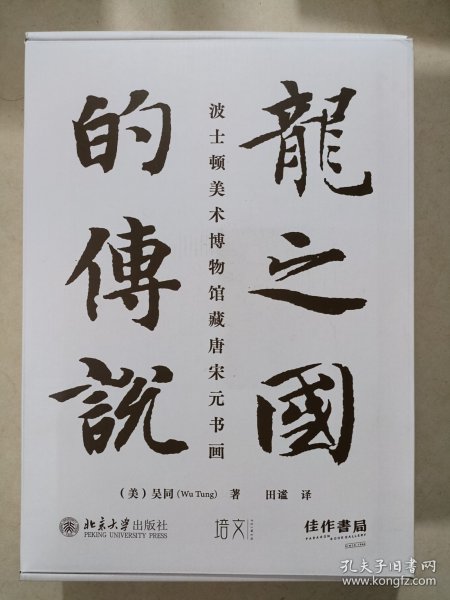 龍之國
的傳說
波士顿美术博物馆藏唐宋元书画
（美）吴同（Wu Tung） 著 田谧 译
北京大学出版社
PEKING UNIVERSITY PRESS
培文
佳作書局
PARAGON BOOK GALLERY
孔夫子旧书网
www.kongfz.com